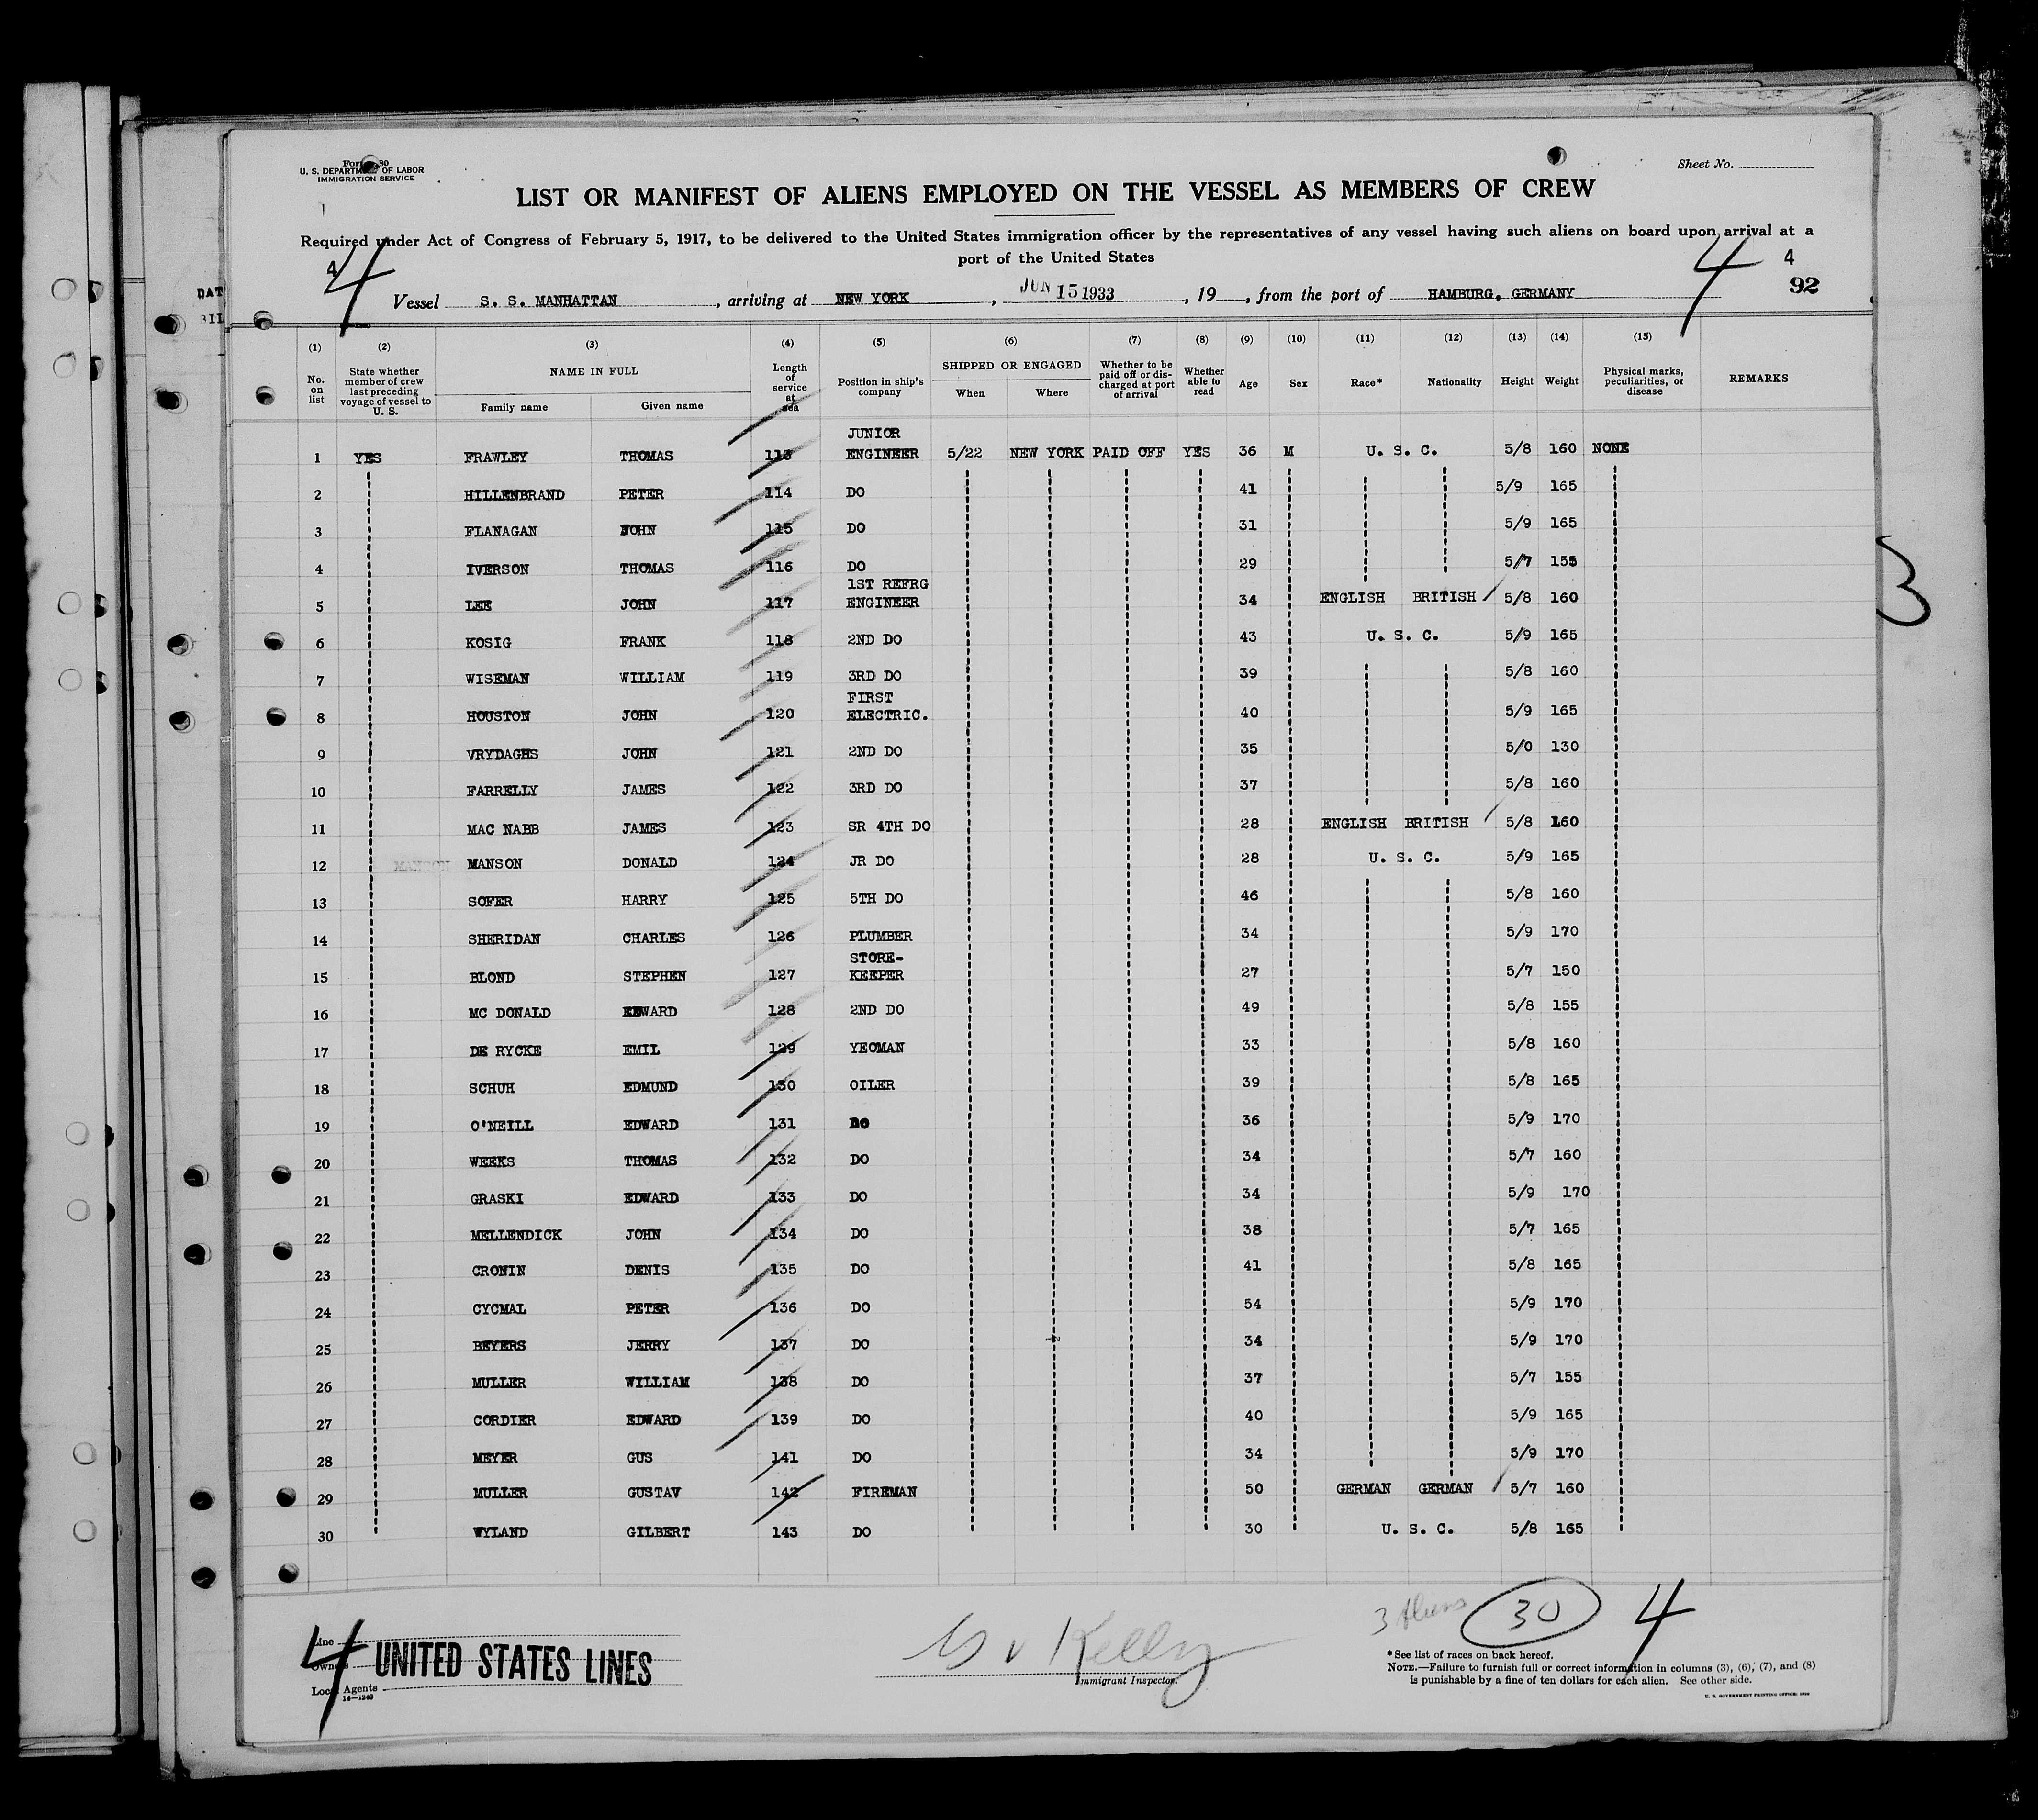 Form 680
U. S. DEPARTMENT OF LABOR
IMMIGRATION SERVICE
Sheet No.
LIST OR MANIFEST OF ALIENS EMPLOYED ON THE VESSEL AS MEMBERS OF CREW
Required under Act of Congress of February 5, 1917, to be delivered to the United States immigration officer by the representatives of any vessel having such aliens on board upon arrival at a
port of the United States
4 4 4 4
92
Vessel S. S. MANHATTAN, arriving at NEW YORK, JUN 15 1933, 19, from the port of HAMBURG, GERMANY
(1) (2) (3) (4) (5) (6) (7) (8) (9) (10) (11) (12) (13) (14) (15)
No. on list State whether member of crew last preceding voyage of vessel to U. S. NAME IN FULL Family name Given name Length of service at sea Position in ship's company SHIPPED OR ENGAGED When Where Whether to be paid off or discharged at port of arrival Whether able to read Age Sex Race* Nationality Height Weight Physical marks, peculiarities, or disease REMARKS
1 YES FRAWLEY THOMAS 113 JUNIOR ENGINEER 5/22 NEW YORK PAID OFF YES 36 M U. S. C. 5/8 160 NONE
2 HILLENBRAND PETER 114 DO 41 5/9 165
3 FLANAGAN JOHN 115 DO 31 5/9 165
4 IVERSON THOMAS 116 DO 29 5/7 155
5 LEE JOHN 117 1ST REFRG ENGINEER 34 ENGLISH BRITISH 5/8 160
6 KOSIG FRANK 118 2ND DO 43 U. S. C. 5/9 165
7 WISEMAN WILLIAM 119 3RD DO 39 5/8 160
8 HOUSTON JOHN 120 FIRST ELECTRIC. 40 5/9 165
9 VRYDAGHS JOHN 121 2ND DO 35 5/0 130
10 FARRELLY JAMES 122 3RD DO 37 5/8 160
11 MAC NABB JAMES 123 SR 4TH DO 28 ENGLISH BRITISH 5/8 160
12 MANSON DONALD 124 JR DO 28 U. S. C. 5/9 165
13 SOFER HARRY 125 5TH DO 46 5/8 160
14 SHERIDAN CHARLES 126 PLUMBER 34 5/9 170
15 BLOND STEPHEN 127 STORE-KEEPER 27 5/7 150
16 MC DONALD EDWARD 128 2ND DO 49 5/8 155
17 DE RYCKE EMIL 129 YEOMAN 33 5/8 160
18 SCHUH EDMUND 130 OILER 39 5/8 165
19 O'NEILL EDWARD 131 DO 36 5/9 170
20 WEEKS THOMAS 132 DO 34 5/7 160
21 GRASKI EDWARD 133 DO 34 5/9 170
22 MELLENDICK JOHN 134 DO 38 5/7 165
23 CRONIN DENIS 135 DO 41 5/8 165
24 CYCMAL PETER 136 DO 54 5/9 170
25 BEYERS JERRY 137 DO 34 5/9 170
26 MULLER WILLIAM 138 DO 37 5/7 155
27 CORDIER EDWARD 139 DO 40 5/9 165
28 MEYER GUS 141 DO 34 5/9 170
29 MULLER GUSTAV 142 FIREMAN 50 GERMAN GERMAN 5/7 160
30 WYLAND GILBERT 143 DO 30 U. S. C. 5/8 165
3
3 Aliens 30 4
4
Line
Owners UNITED STATES LINES
Local Agents
14—1240
Kelly
Immigrant Inspector.
*See list of races on back hereof.
NOTE.—Failure to furnish full or correct information in columns (3), (6), (7), and (8)
is punishable by a fine of ten dollars for each alien. See other side.